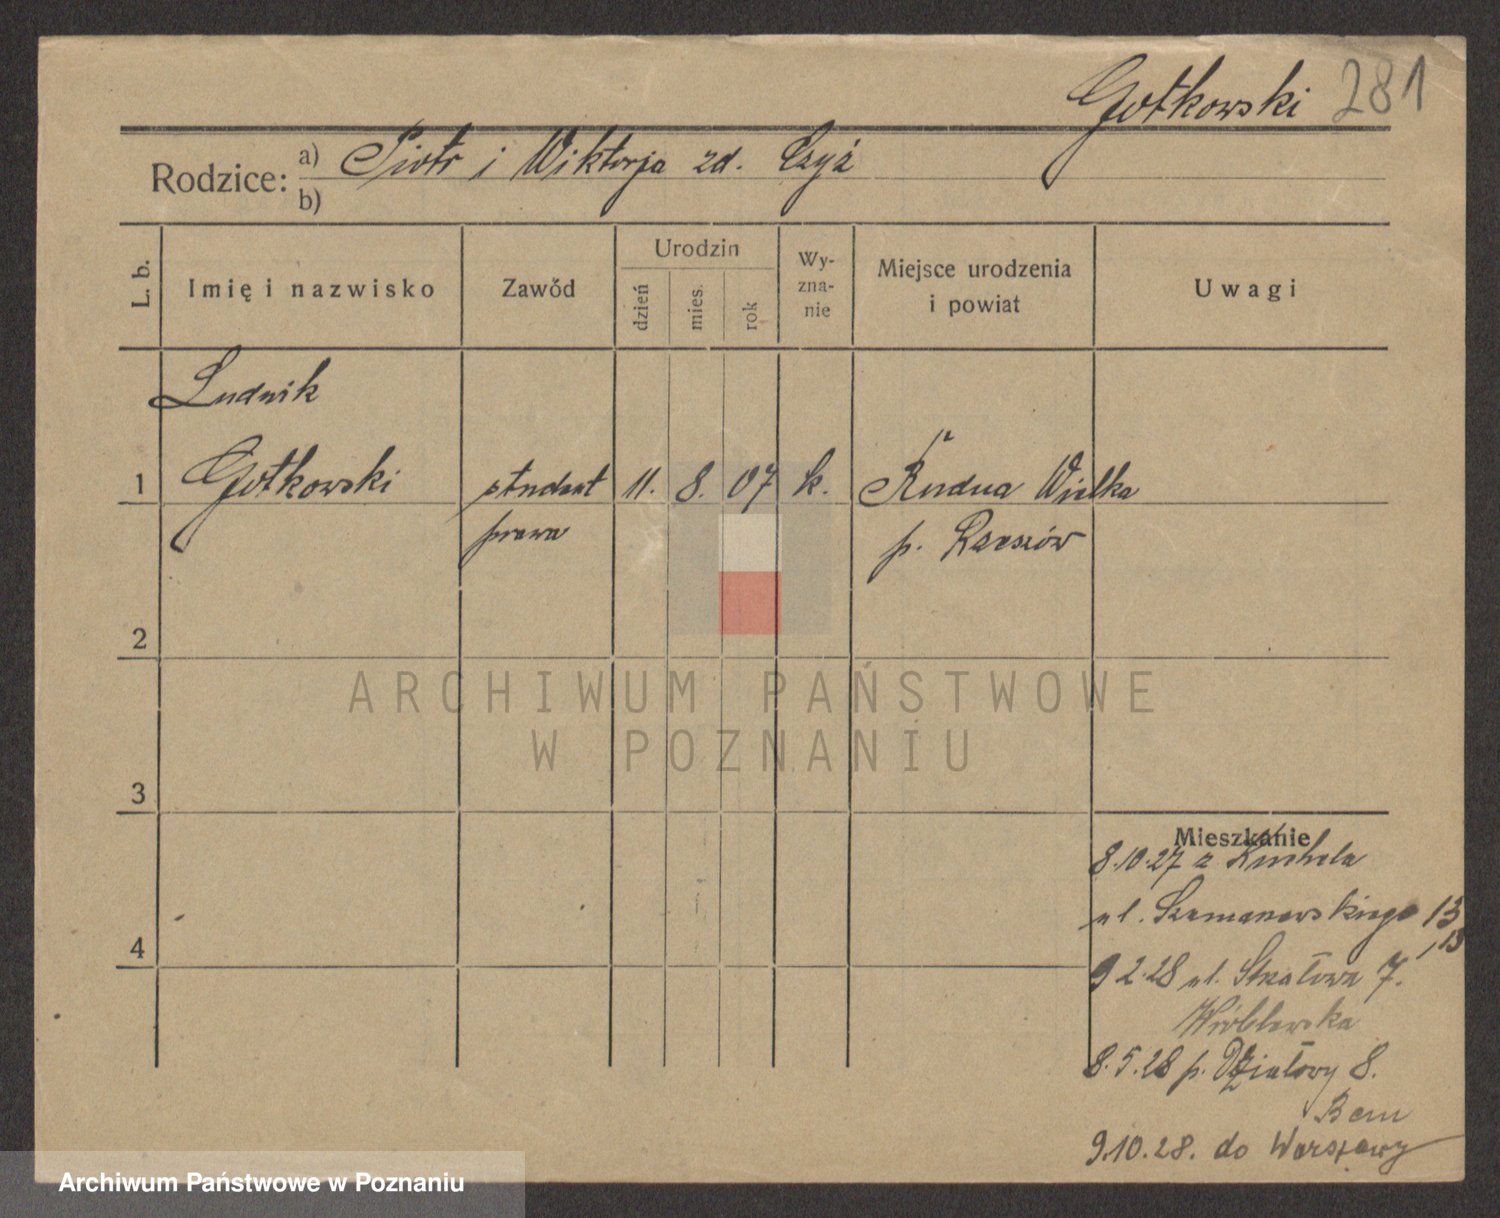 Gołkowski 281
Rodzice: a) Piotr i Wiktorja zd. Czyż
b)
L. b. Imię i nazwisko Zawód Urodzin dzień mies. rok Wy-zna-nie Miejsce urodzenia i powiat Uwagi
Ludwik
1 Gołkowski student 11. 8. 07 k. Rudna Wielka
prawa p. Rzeszów
2
3
4
Mieszkanie
8.10.27 z
ul. Szamarzewskiego 13
9 2.28 ul. 7.
Wróblewska
8.5.28 p. Działowy 8.
Bem
9.10.28. do Warszawy
ARCHIWUM PAŃSTWOWE
W POZNANIU
Archiwum Państwowe w Poznaniu